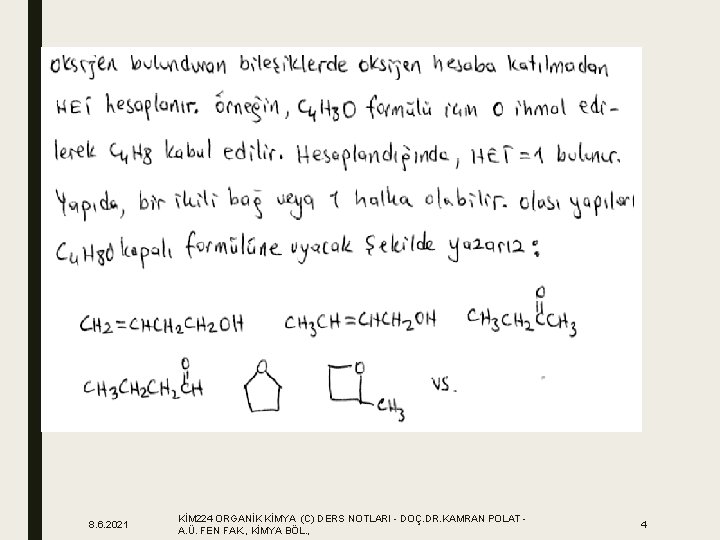 oksijen bulunduran bileşiklerde oksijen hesaba katılmadan
HEİ hesaplanır. örneğin, C4H8O formülü için O ihmal edi-
lerek C4H8 kabul edilir. Hesaplandığında, HEİ = 1 bulunur.
Yapıda, bir ikili bağ veya 1 halka olabilir. olası yapıları
C4H8O kapalı formülüne uyacak şekilde yazarız :
CH2=CHCH2CH2OH CH3CH=CHCH2OH CH3CH2CCH3 O
CH3CH2CH2CH O O O CH3 vs.
8.6.2021
KİM224 ORGANİK KİMYA (C) DERS NOTLARI - DOÇ.DR.KAMRAN POLAT -
A.Ü. FEN FAK., KİMYA BÖL.,
4